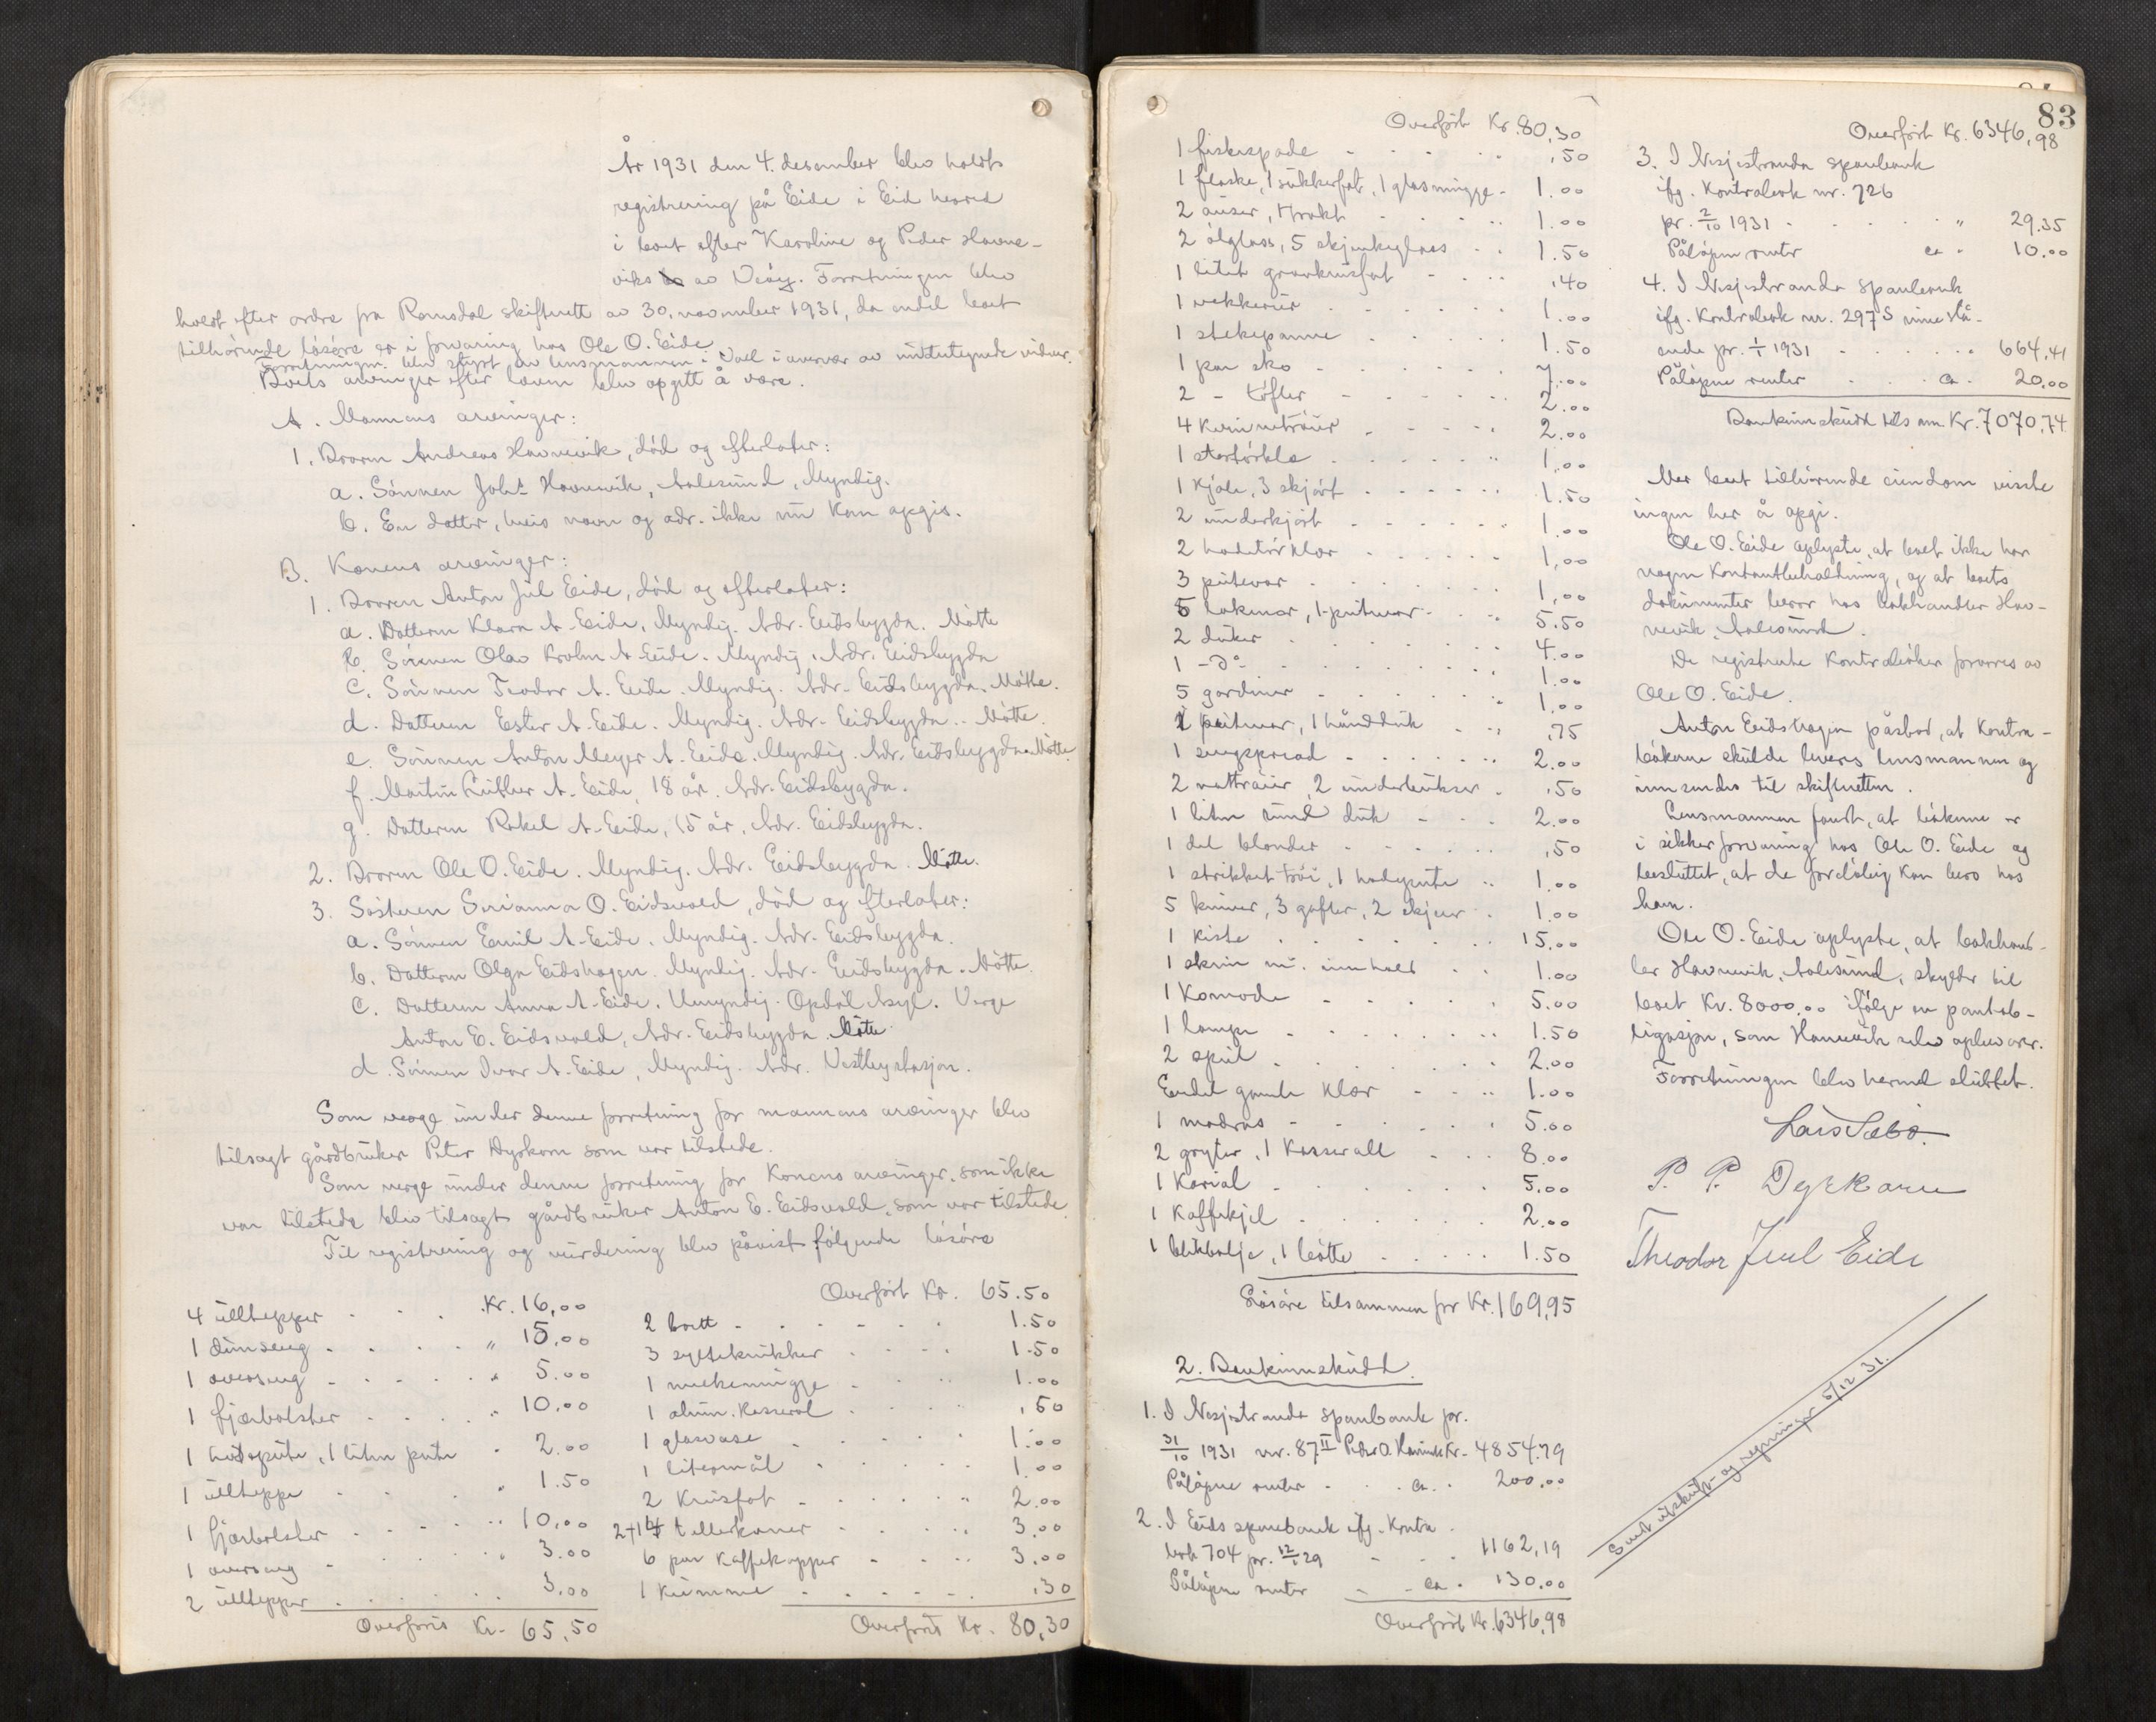 År 1931 den 4. desember blev holdt
registrering på Eide i Eid herred
i boet efter Karoline og Peder Havne-
viks av Veøy. Forretningen blev
holdt efter ordre fra Romsdal skifterett av 30. november 1931, da endel boet
tilhörende lösöre er i forvaring hos Ole O. Eide
Forretningen blev styrt av lensmannen i Voll i overvær av undertegnede vidner.
Boets arvinger efter loven blev opgitt å være.
A. Mannens arvinger:
1. Broren Andreas Havnevik, död og efterlater:
a. Sönnen Johs Havnevik, Aalesund, Myndig.
b. En datter, hvis navn og adr. ikke nu kan opgis.
B. Konens arvinger:
1. Broren Anton Jul Eide, död og efterlater:
a. Datteren Klara A. Eide, Myndig. Adr. Eidsbygda. Mötte
b. Sönnen Olav A. Eide. Myndig. Adr. Eidsbygda
c. Sönnen Teodor A. Eide. Myndig. Adr. Eidsbygda. Mötte.
d. Datteren Ester A. Eide. Myndig. Adr. Eidsbygda. Mötte.
e. Sönnen Anton Meyer A. Eide. Myndig. Adr. Eidsbygda. Mötte.
f. Martin Luther A. Eide, 18 år. Adr. Eidsbygda.
g. Datteren Rakel A. Eide, 15 år. Adr. Eidsbygda.
2. Broren Ole O. Eide. Myndig. Adr. Eidsbygda. Mötte.
3. Sösteren O. Eidsvold, död og efterlater:
a. Sönnen Emil A. Eide. Myndig. Adr. Eidsbygda.
b. Datteren Olga Eidshagen. Myndig. Adr. Eidsbygda. Mötte.
c. Datteren Anna A. Eide. Umyndig. Opdöl Asyl. Verge
Anton E. Eidsvold, Adr. Eidsbygda. Mötte
d. Sönnen Ivar A. Eide, Myndig. Adr. Vestby stasjon.
Som verge under denne forretning for mannens arvinger blev
tilsagt gårdbruker Peter Dyrkorn som var tilstede.
Som verge under denne forretning for Konens arvinger, som ikke
var tilstede blev tilsagt gårdbruker Anton E. Eidsvold, som var tilstede.
Til registrering og vurdering blev påvist fölgende lösöre
4 ulltepper Kr. 16,00
1 dunseng " 15,00
1 overseng " 5.00
1 fjærbolster " 10.00
1 hodepute, 1 liten pute " 2.00
1 ullteppe " 1.50
1 fjærbolster " 10,00
1 overseng " 3.00
2 ulltepper 3,00
Overföres Kr. 65,50
Overfört Kr. 65.50
2 brett 1.50
3 syltekrukker 1.50
1 melkemugge 1.00
1 alum. Kasserol ,50
1 glasvase 1.00
1 litermål 1.00
2 Krusfat 2.00
2+14 tallerkener 3.00
6 par Kaffekopper 3,00
1 Kumme ,30
Overföres Kr. 80,30
83
Overfört Kr. 80,30
1 fiskespade ,50
1 flaske, 1 sukkerfat, 1 glasmugge 1.00
2 auser, 1 trakt 1.00
2 ölglass, 5 skjenkeglass 1.50
1 litet krusfat ,40
1 vekkerur 1.00
1 stekepanne 1.50
1 par sko 7.00
2 - töfler 2.00
4 Kvinnetröier 2.00
1 stortörkle 1,00
1 Kjole, 3 skjört 1.50
2 underkjört 1.00
2 hodetörklær 1,00
3 putevar 1,00
5 lakener, 1 putevar 5.50
2 duker 4.00
1 - do 1.00
5 gardiner 1,00
1 putevar, 1 håndduk ,75
1 sengspread 2.00
2 nattröier, 2 underbukser ,50
1 liten rund duk 2.00
1 del blonder ,50
1 strikket tröi, 1 hodepute 1.00
5 kniver, 3 gafler, 2 skjeer 1.00
1 kiste 15.00
1 skrin m. innhold 1.00
1 Komode 5.00
1 lampe 1.50
2 speil 2.00
Endel gamle klær 1.00
1 madras 5.00
2 gryter, 1 Kasserolle 8.00
1 Korial 5,00
1 Kaffekjel 2.00
1 blikbalje, 1 bötte 1.50
Lösöre tilsammen for Kr. 169,95
2. Bankinnskudd.
1. I Nesjestranda sparebank pr.
31/10 1931 nr. 87 II Peder O. Havnevik Kr. 4854.79
Pålöpne renter ca. 200,00
2. I Eids sparebank ifg. Kontra
bok 704 pr. 12/1 29 1162,19
Pålöpne renter ca. 130.00
Overfört Kr. 6346,98
Overfört Kr. 6346,98
3. I Nesjestranda sparebank
ifg. Kontrabok nr. 726
pr. 2/10 1931 " 29.35
Pålöpne renter ca. 10.00
4. I Nesjestranda sparebank
ifg. Kontrabok nr. 297 S innestå-
ende pr. 1/1 1931 664,41
Pålöpne renter ca. 20.00
Bankinnskudd tils. Kr. 7070,74
Mer boet tilhörende eiendom visste
ingen her å opgi.
Ole O. Eide oplyste, at boet ikke har
nogen Kontantbeholdning, og at boets
dokumenter beror hos bokhandler Hav-
nevik, Aalesund.
De registrerte Kontraböker forvares av
Ole O. Eide.
Anton Eidshagen påstod, at Kontra-
bökene skulde leveres lensmannen og
innsendes til skifteretten.
Lensmannen fandt, at bökene er
i sikker forvaring hos Ole O. Eide og
besluttet, at de foreløbig kan bero hos
ham.
Ole O. Eide oplyste, at bokhand-
ler Havnevik, Aalesund, skylder til
boet Kr. 8000.00 ifölge en pantob-
ligasjon, som Havnevik selv opbevarer.
Forretningen blev hermed sluttet.
Lars Sæbö.
P. P. Dyrkorn
Theodor Juul Eide
Sendt utskrift og regninger 5/12 31.